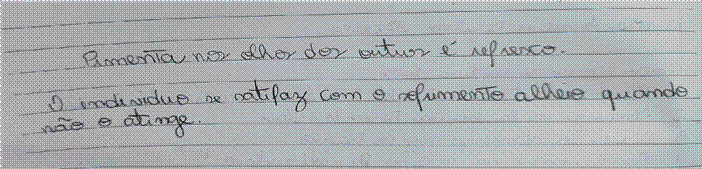 Pimenta nos olhos dos outros é refresco.
O individuo se satifaz com o sofrimento alheio quando
não o atinge.